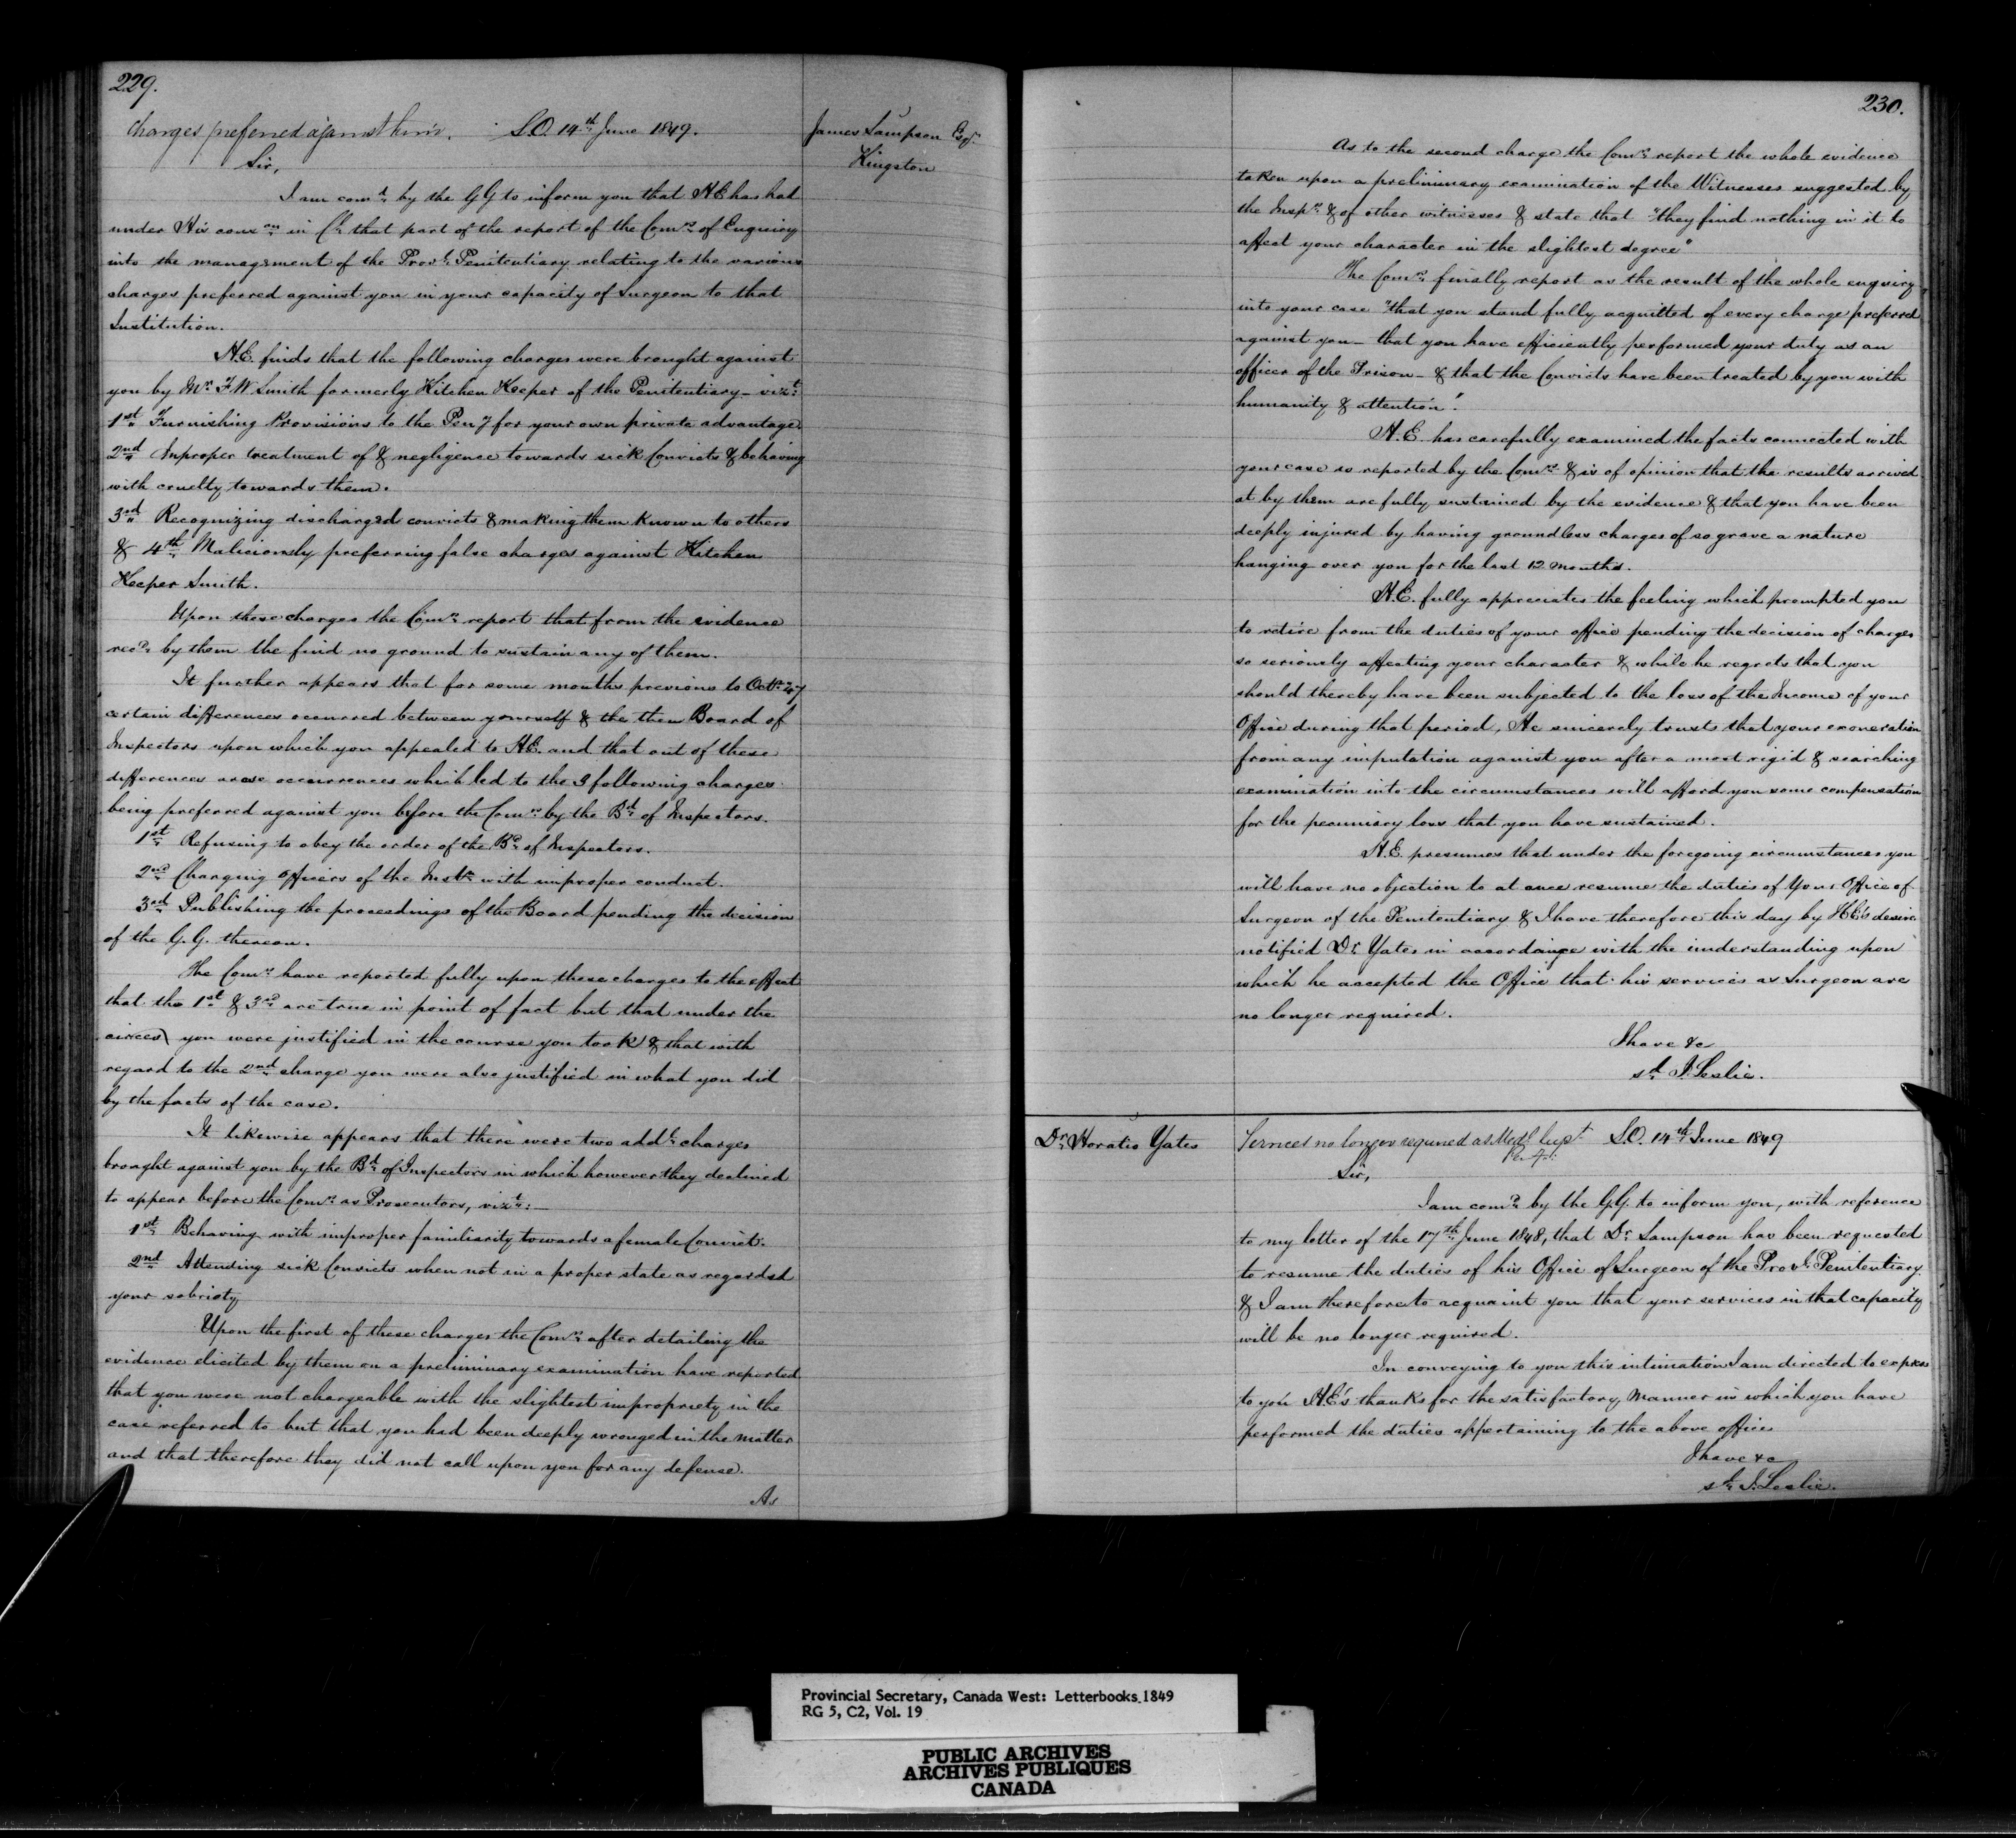 229.
charges preferred against him. S.O. 14th June 1849.
James Sampson Esqr.
Kingston
Sir,
I am comd. by the GG to inform you that H.E has had
under His conson. in Cl. that part of the report of the Comrs. of Enquiry
into the management of the Provl. Penitentiary relating to the various
charges preferred against you in your capacity of Surgeon to that
Institution.
H.E. finds that the following charges were brought against
you by Mr. F W Smith formerly Kitchen Keeper of the Penitentiary - vizt.
1st Furnishing Provisions to the Peny for your own private advantage
2nd Improper treatment of & negligence towards sick Convicts & behaving
with cruelty towards them.
3rd Recognizing discharged convicts & making them known to others
& 4th. Maliciously preferring false charges against Kitchen
Keeper Smith.
Upon these charges the Comrs. report that from the evidence
recd. by them the find no ground to sustain any of them.
It further appears that for some months previous to Octr. 47
certain differences occurred between yourself & the then Board of
Inspectors upon which you appealed to H.E. and that out of these
differences arose occurrences which led to the 3 following charges
being preferred against you before the Comrs. by the Bd. of Inspectors.
1st Refusing to obey the order of the Bd. of Inspectors.
2nd Charging Officers of the Instn. with improper conduct.
3rd Publishing the proceedings of the Board pending the decision
of the G.G. thereon.
The Comrs. have reported fully upon these charges to the effect
that the 1st & 3rd are true in point of fact but that under the
circes) you were justified in the course you took & that with
regard to the 2nd charge you were also justified in what you did
by the facts of the case.
It likewise appears that there were two addl. charges
brought against you by the Bd. of Inspectors in which however they declined
to appear before the Comrs. as Prosecutors, vizt:-
1st Behaving with improper familiarity towards a female Convict.
2nd Attending sick Convicts when not in a proper state as regarded
your sobriety
Upon the first of these charges the Comrs. after detailing the
evidence elicited by them on a preliminary examination have reported
that you were not chargeable with the slightest impropriety in the
case referred to but that you had been deeply wronged in the matter
and that therefore they did not call upon you for any defense.
As
230.
As to the second charge the Comrs. report the whole evidence
taken upon a preliminary examination of the Witnesses suggested by
the Insprs. & of other witnesses & state that "they find nothing in it to
affect your character in the slightest degree"
The Comrs. finally report as the result of the whole enquiry
into your case "that you stand fully acquitted of every charge preferred
against you - that you have efficiently performed your duty as an
officer of the Prison - & that the Convicts have been treated by you with
humanity & attention".
H.E. has carefully examined the facts connected with
your case as reported by the Comrs. & is of opinion that the results arrived
at by them are fully sustained by the evidence & that you have been
deeply injured by having groundless charges of so grave a nature
hanging over you for the last 12 months.
H.E. fully appreciates the feeling which prompted you
to retire from the duties of your office pending the decision of charges
so seriously affecting your character & while he regrets that you
should thereby have been subjected to the loss of the Income of your
Office during that period, He sincerely trusts that your exoneration
from any imputation against you after a most rigid & searching
examination into the circumstances will afford you some compensation
for the pecuniary loss that you have sustained.
H.E. presumes that under the foregoing circumstances you
will have no objection to at once resume the duties of your Office of
Surgeon of the Penitentiary & I have therefore this day by H.E's desire
notified Dr. Yates in accordance with the understanding upon
which he accepted the Office that his services as Surgeon are
no longer required.
I have &c
sd. J. Leslie.
Dr. Horatio Yates
Services no longer required as Medl Supt. S.O. 14th June 1849
Sir,
I am comd. by the G.G. to inform you, with reference
to my letter of the 17th June 1848, that Dr. Sampson has been requested
to resume the duties of his Office of Surgeon of the Provl. Penitentiary
& I am therefore to acquaint you that your services in that capacity
will be no longer required.
In conveying to you this intimation I am directed to express
to you H.E's thanks for the satisfactory manner in which you have
performed the duties appertaining to the above office
I have &c
sd. J. Leslie.
Provincial Secretary, Canada West: Letterbooks 1849
RG 5, C2, Vol. 19
PUBLIC ARCHIVES
ARCHIVES PUBLIQUES
CANADA